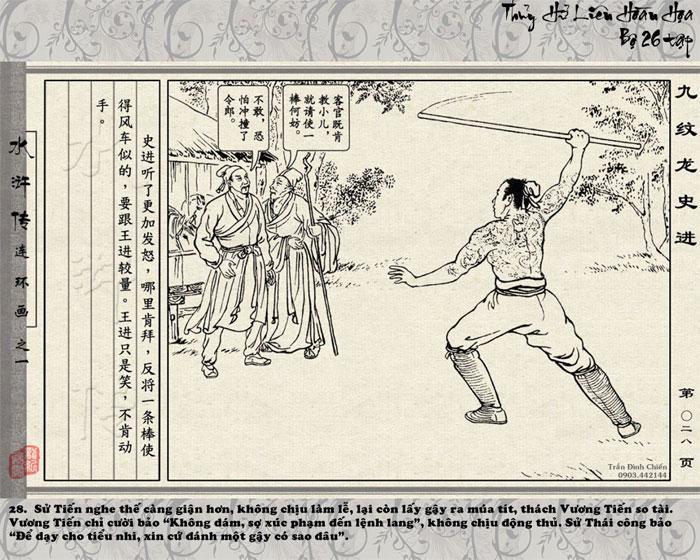 Thủy Hử Liên Hoàn Họa
Bộ 26 tập
九纹龙史进
第〇二八页
客官既肯
教小儿，
就请使一
棒何妨。
不敢，恐
怕冲撞了
令郎。
史进听了更加发怒，哪里肯拜，反将一条棒使
得风车似的，要跟王进较量。王进只是笑，不肯动
手。
水浒传连环画之一
Trần Đình Chiến
0903.442144
28. Sử Tiến nghe thế càng giận hơn, không chịu làm lễ, lại còn lấy gậy ra múa tít, thách Vương Tiến so tài.
Vương Tiến chỉ cười bảo “Không dám, sợ xúc phạm đến lệnh lang”, không chịu động thủ. Sử Thái công bảo
“Để dạy cho tiểu nhi, xin cứ đánh một gậy có sao đâu”.